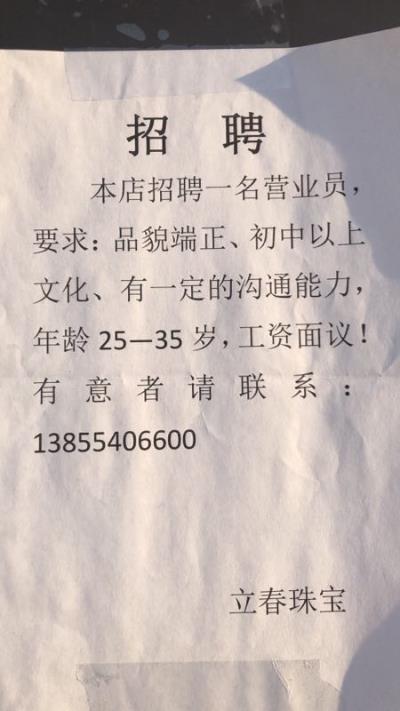 招 聘
本店招聘一名营业员，
要求：品貌端正、初中以上
文化、有一定的沟通能力，
年龄 25—35 岁，工资面议！
有意者请联系：
13855406600
立春珠宝